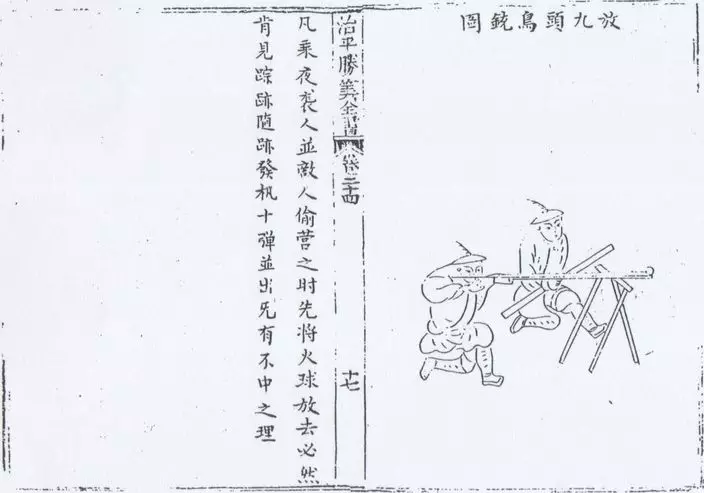 放九頭鳥銃圖
治平勝筭全書
卷二十四
十七
凡乘夜袭人並敵人偷营之时先將火球放去必然
肯見踪跡随跡發机十弹並出旡有不中之理